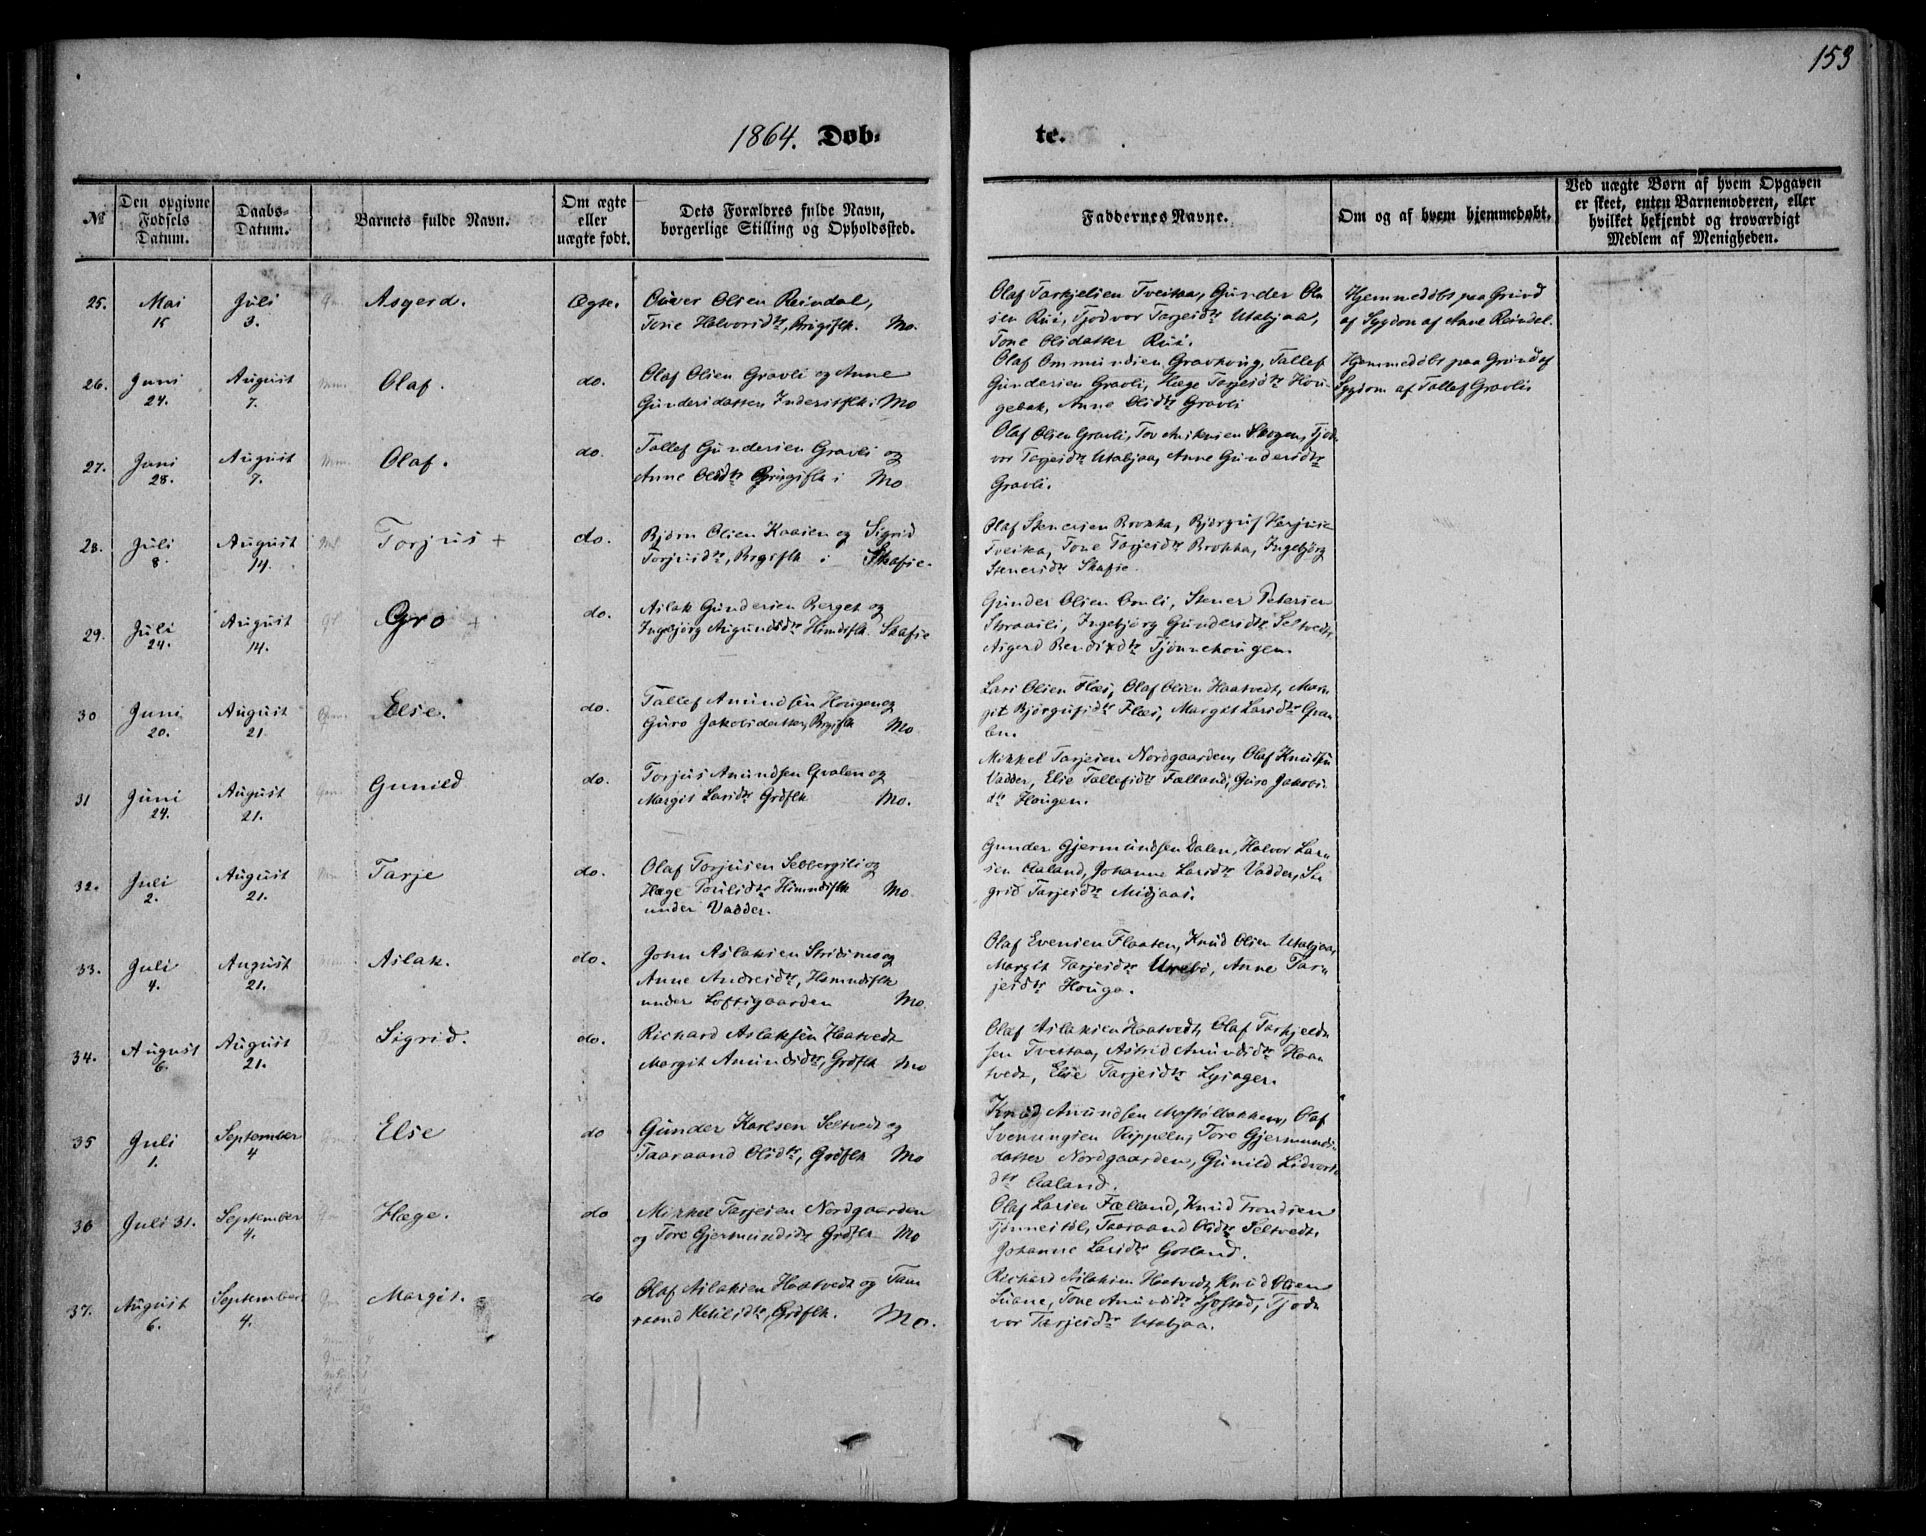 153
1864. Døb-
te.
№
Den opgivne
Fødsels
Datum.
Daabs-
Datum.
Barnets fulde Navn.
Om ægte
eller
uægte født.
Dets Forældres fulde Navn,
borgerlige Stilling og Opholdssted.
Faddernes Navne.
Om og af hvem hjemmedøbt.
Ved uægte Børn af hvem Opgaven
er skeet, enten Barnemoderen, eller
hvilket bekjendt og troværdigt
Medlem af Menigheden.
25.
Mai
15
Juli
3.
Asgerd.
Ægte.
Olsen Reindal,
Tone Halvorsdtr, Mo.
Olaf Tarkjelsen Tveitaa, Gunder Ol-
sen Rui, Tjodvor Tarjeidtr Utabjaa,
Tone Olsdatter Rui.
Hjemmedøbt paa Grund
af Sygdom af Anne Reindal.
26.
Juni
24.
August
7.
Olaf.
do.
Olaf Olsen Gravli og Anne
Gundersdatter, Mo
Olaf Ommundsen Tallef
Gundersen Gravli, Hæge Tarjeidtr Hou-
gebak, Anne Olsdtr Gravli
Hjemmedøbt paa Grund af
Sygdom af Tallef Gravli
27.
Juni
28.
August
7.
Olaf.
do.
Tallef Gundersen Gravli og
Anne Olsdtr i Mo
Olaf Olsen Gravli, Tov Skogen, Tjod-
vor Tarjeidtr Utabjaa, Anne Gundersdtr
Gravli.
28.
Juli
8.
August
14.
Torjus +
do.
Bjørn Olsen Kaasen og Sigrid
Torjusdtr, i Skafse.
Olaf Stenersen Brokka, Bjørguf
Tveitaa, Tone Tarjeidtr Brokka, Ingebjørg
Stenersdtr Skafse.
29.
Juli
24.
August
14.
Gro +
do.
Aslak Gundersen Berget og
Ingebjørg Augundsdtr Skafse
Gunder Olsen Omli, Stener Petersen
Skraaili, Ingebjørg Gundersdtr Seltvedt,
Asgerd Bendixdtr Tjønnehougen.
30
Juni
20.
August
21.
Else.
do.
Tallef Amundsen Hougen og
Guro Jakobsdatter, Mo
Lars Olsen Flæs, Olaf Olsen Haatvedt, Mar-
git Bjørgufsdtr Flæs, Margit Larsdtr
31
Juni
24.
August
21.
Gunild
do.
Torjus Amundsen Qvalen og
Margit Larsdtr Mo.
Mikkel Tarjeisen Nordgaarden, Olaf Knudsen
Vadder, Else Tallefsdtr Fælland, Guro Jakobs-
dtr Hougen.
32.
Juli
2.
August
21.
Tarje
do.
Olaf Torjusen og
Hæge Mo.
under Vadder.
Gunder Gjermundsen Dalen, Halvor Lar-
sen Aaland, Johanne Larsdtr Vadder, Si-
grid Tarjeidtr Midjaas.
33.
Juli
4.
August
21.
Aslak.
do.
John Aslaksen og
Anne Andresdtr,
under Loftsgaarden Mo
Olaf Evensen Flaaten, Knud Olsen Utabjaa,
Margit Tarjeidtr Urebø, Anne Tar-
jeidtr Houga.
34.
August
6.
August
21.
Sigrid.
do.
Richard Aslaksen Haatvedt
Margit Amundsdtr, Mo
Olaf Aslaksen Haatvedt, Olaf Tarkjeld-
sen Tveitaa, Astrid Amundsdtr Haa-
tvedt, Else Tarjeidtr Lysager.
35
Juli
1.
September
4
Else
do
Gunder Karlsen Seltvedt og
Taaraand Olsdtr, Mo
Knud Amundsen Olaf
Svenungsen Rippeln, Tore Gjermunds-
datter Nordgaarden, Gunild
dtr Aaland.
36
Juli 31.
September
4.
Hæge.
do
Mikkel Tarjeisen Nordgaarden
og Tore Gjermundsdtr Mo
Olaf Larsen Fælland, Knud Trondsen
Tjønnestøl, Taaraand Olsdtr Seltvedt,
Johanne Larsdtr Gotland.
37.
August
6.
September
4.
Margit.
do
Olaf Aslaksen Haatvedt og Taa-
raand Ketilsdtr, Mo.
Richard Aslaksen Haatvedt, Knud Olsen
Tone Amundsdtr Tjod-
vor Tarjeidtr Utabjaa.